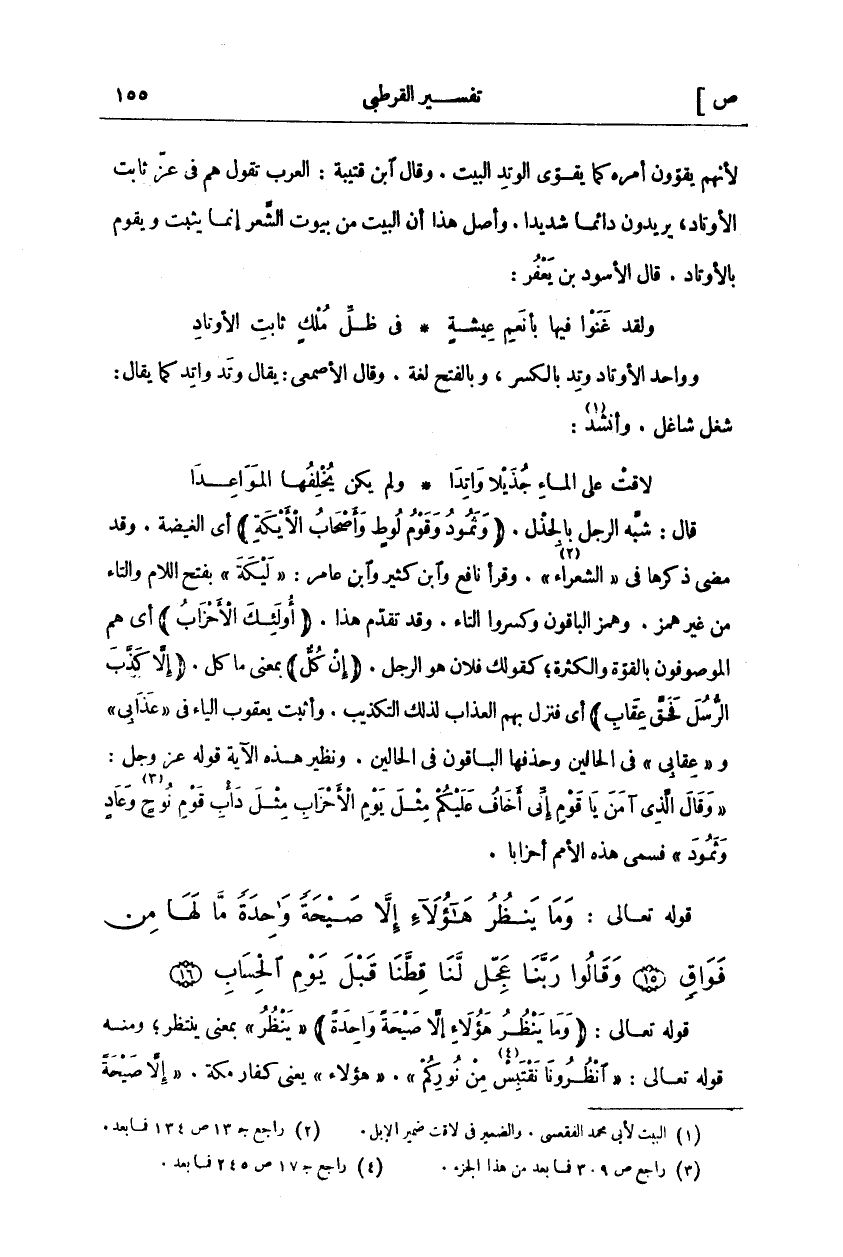 ص ] تفســـير القرطبى ١٥٥
لأنهم يقوّون أمره كما يقــوّى الوتِد البيت . وقال آبن قتيبة : العرب تقول هم فى عزّ ثابت
الأوتاد، يريدون دائمــا شديدا . وأصل هذا أن البيت من بيوت الشَّعر إنمــا يثبت ويقوم
بالأوتاد . قال الأسود بن يَعْفُر :
ولقد غَنَوْا فيها بأنعَمِ عِيشــةٍ * فى ظــلِّ مُلْكٍ ثابتِ الأوتادِ
وواحد الأوتاد وتِد بالكسر ، وبالفتح لغة . وقال الأصمعى : يقال وتَد واتِد كما يقال :
شغل شاغل . وأنشد(١) :
لاقتْ على المــاءِ جُذَيْلا وَاتِدَا * ولم يكن يُخْلِفُهــا المَوَاعِــدَا
قال : شبَّه الرجل بالجِذْل . ﴿ وَثَمُودُ وَقَوْمُ لُوطٍ وَأَصْحَابُ الْأَيْكَةِ ﴾ أى الغيضة . وقد
مضى ذكرها فى « الشعراء(٢) » . وقرأ نافع وآبن كثير وآبن عامر : « لَيْكَةَ » بفتح اللام والتاء
من غير همز . وهمز الباقون وكسروا التاء . وقد تقدّم هذا . ﴿ أُولَئِــكَ الْأَحْزَابُ ﴾ أى هم
الموصوفون بالقوّة والكثرة؛ كقولك فلان هو الرجل . ﴿ إِنْ كُلٌّ ﴾ بمعنى ما كل . ﴿ إِلَّا كَذَّبَ
الرُّسُلَ فَحَقَّ عِقَابِ ﴾ أى فنزل بهم العذاب لذلك التكذيب . وأثبت يعقوب الياء فى «عَذَابِى»
و « عِقابِى » فى الحالين وحذفها البــاقون فى الحالين . ونظير هــذه الآية قوله عز وجل :
« وَقَالَ الَّذِى آمَنَ يَا قَوْمِ إِنِّى أَخَافُ عَلَيْكُمْ مِثْــلَ يَوْمِ الْأَحْزَابِ مِثْــلَ دَأْبِ قَوْمِ نُوحٍ(٣) وَعَادٍ
وَثَمُودَ » فسمى هذه الأمم أحزابا .
قوله تعــالى : وَمَا يَنــظُرُ هَـٰٓؤُلَآءِ إِلَّا صَــيْحَةً وَٰحِدَةً مَّا لَهَــا مِن
فَوَاقٍ ۝١٥ وَقَالُوا رَبَّنَا عَجِّل لَّنَا قِطَّنَا قَبْلَ يَوْمِ ٱلْحِسَابِ ۝١٦
قوله تعــالى : ﴿ وَمَا يَنْظُــرُ هَؤُلَاءِ إِلَّا صَيْحَةً وَاحِدَةً ﴾ « يَنْظُرُ » بمعنى ينتظر؛ ومنــه
قوله تعــالى : « ٱنْظُرُونَا نَقْتَبِسْ(٤) مِنْ نُورِكُمْ » . « هؤلاء » يعنى كفار مكة . « إِلَّا صَيْحَةً
(١) البيت لأبى محمد الفقعسى . والضمير فى لاقت ضمير الإبل . (٢) راجع جـ ١٣ ص ١٣٤ فــا بعد .
(٣) راجع ص ٣٠٩ فــا بعد من هذا الجزء . (٤) راجع جـ ١٧ ص ٢٤٥ فــا بعد .